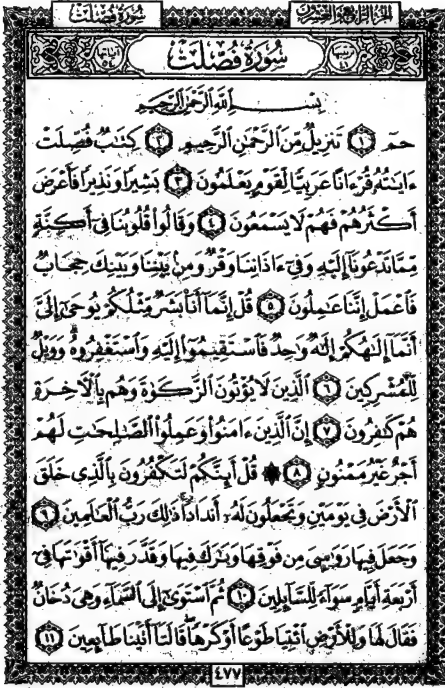 الجزء الرابع والعشرون
سورة فصلت
سُورَةُ فُصِّلَتْ
بِسْمِ اللَّهِ الرَّحْمَٰنِ الرَّحِيمِ
حمٓ ١ تَنزِيلٌ مِّنَ الرَّحْمَٰنِ الرَّحِيمِ ٢ كِتَٰبٌ فُصِّلَتْ
ءَايَٰتُهُۥ قُرْءَانًا عَرَبِيًّا لِّقَوْمٍ يَعْلَمُونَ ٣ بَشِيرًا وَنَذِيرًا فَأَعْرَضَ
أَكْثَرُهُمْ فَهُمْ لَا يَسْمَعُونَ ٤ وَقَالُوا۟ قُلُوبُنَا فِىٓ أَكِنَّةٍ
مِّمَّا تَدْعُونَآ إِلَيْهِ وَفِىٓ ءَاذَانِنَا وَقْرٌ وَمِنۢ بَيْنِنَا وَبَيْنِكَ حِجَابٌ
فَٱعْمَلْ إِنَّنَا عَٰمِلُونَ ٥ قُلْ إِنَّمَآ أَنَا۠ بَشَرٌ مِّثْلُكُمْ يُوحَىٰٓ إِلَىَّ
أَنَّمَآ إِلَٰهُكُمْ إِلَٰهٌ وَٰحِدٌ فَٱسْتَقِيمُوٓا۟ إِلَيْهِ وَٱسْتَغْفِرُوهُ ۗ وَوَيْلٌ
لِّلْمُشْرِكِينَ ٦ ٱلَّذِينَ لَا يُؤْتُونَ ٱلزَّكَوٰةَ وَهُم بِٱلْءَاخِرَةِ
هُمْ كَٰفِرُونَ ٧ إِنَّ ٱلَّذِينَ ءَامَنُوا۟ وَعَمِلُوا۟ ٱلصَّٰلِحَٰتِ لَهُمْ
أَجْرٌ غَيْرُ مَمْنُونٍ ٨ ۞ قُلْ أَئِنَّكُمْ لَتَكْفُرُونَ بِٱلَّذِى خَلَقَ
ٱلْأَرْضَ فِى يَوْمَيْنِ وَتَجْعَلُونَ لَهُۥٓ أَندَادًا ۚ ذَٰلِكَ رَبُّ ٱلْعَٰلَمِينَ ٩
وَجَعَلَ فِيهَا رَوَٰسِىَ مِن فَوْقِهَا وَبَٰرَكَ فِيهَا وَقَدَّرَ فِيهَآ أَقْوَٰتَهَا فِىٓ
أَرْبَعَةِ أَيَّامٍ سَوَآءً لِّلسَّآئِلِينَ ١٠ ثُمَّ ٱسْتَوَىٰٓ إِلَى ٱلسَّمَآءِ وَهِىَ دُخَانٌ
فَقَالَ لَهَا وَلِلْأَرْضِ ٱئْتِيَا طَوْعًا أَوْ كَرْهًا قَالَتَآ أَتَيْنَا طَآئِعِينَ ١١
٤٧٧